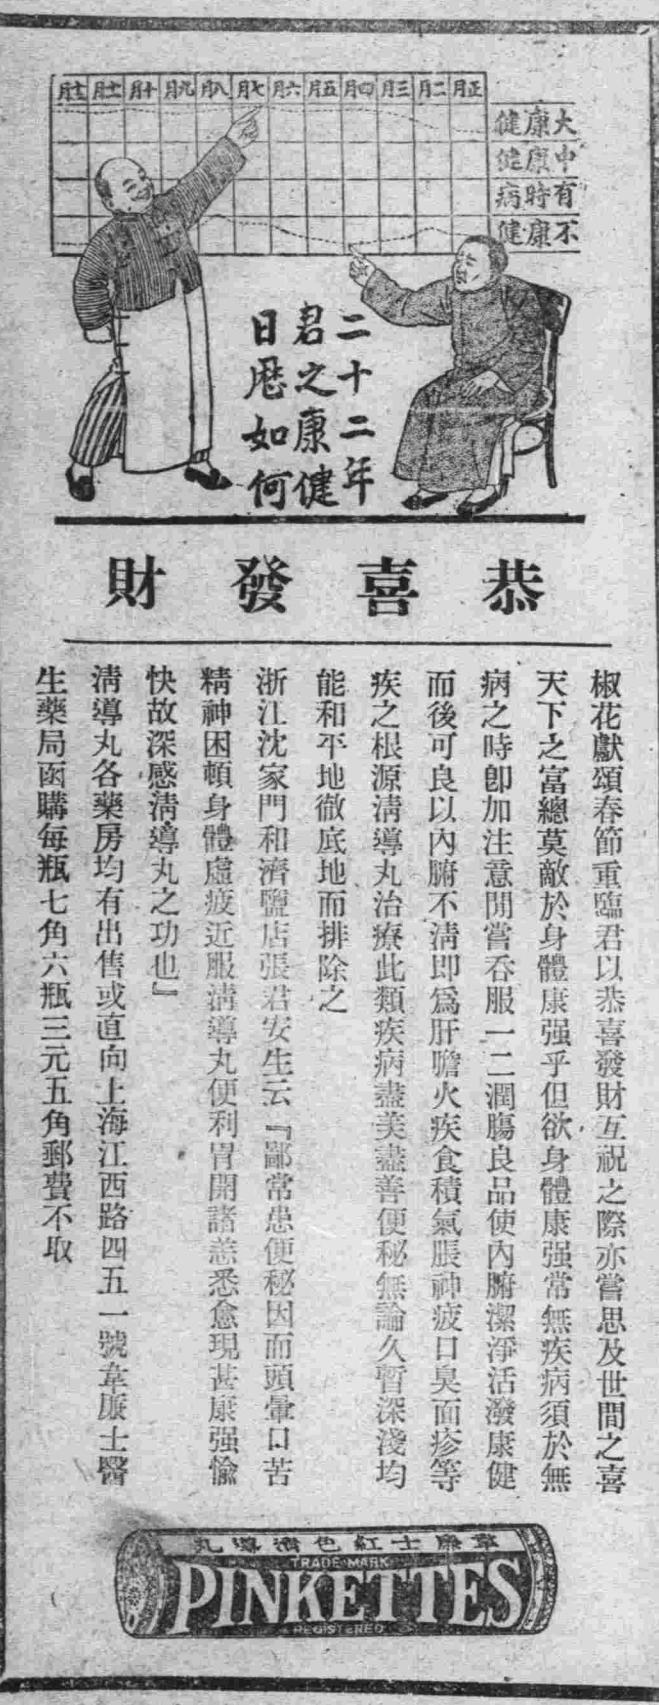 正月 二月 三月 四月 五月 六月 七月 八月 九月 十月 十一月 十二月
大康健
中康健
有時病
不康健
二十二年
君之康健
日曆如何
恭喜發財
椒花獻頌春節重臨君以恭喜發財互祝之際亦嘗思及世間之喜
天下之富總莫敵於身體康强乎但欲身體康强常無疾病須於無
病之時卽加注意閒嘗呑服一二潤腸良品使內腑潔淨活潑康健
而後可良以內腑不淸即爲肝膽火疾食積氣脹神疲口臭面疹等
疾之根源淸導丸治療此類疾病盡美盡善便秘無論久暫深淺均
能和平地徹底地而排除之
浙江沈家門和濟鹽店張君安生云『鄙常患便秘因而頭暈口苦
精神困頓身體虛疲近服淸導丸便利胃開諸恙悉愈現甚康强愉
快故深感淸導丸之功也』
淸導丸各藥房均有出售或直向上海江西路四五一號韋廉士醫
生藥局函購每瓶七角六瓶三元五角郵費不取
韋廉士紅色清導丸
TRADE MARK
PINKETTES
REGISTERED